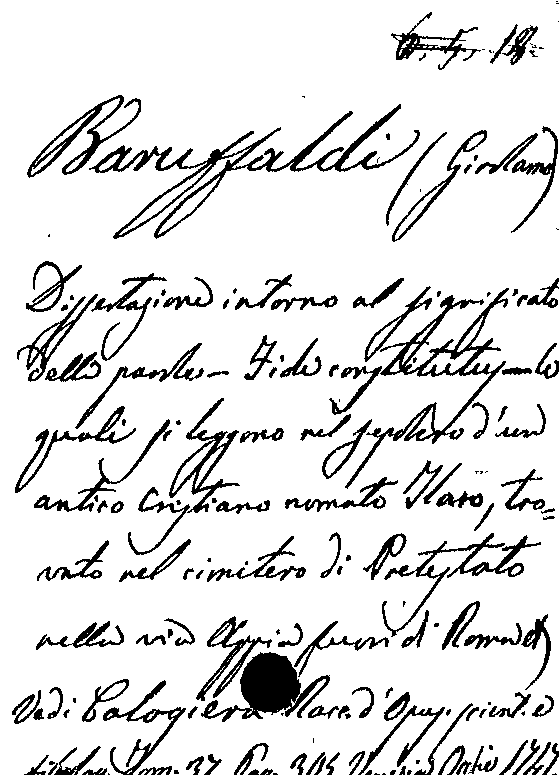 6. 5. 18.
Baruffaldi (Girolamo)
Dissertazione intorno al significato
delle parole – Fide constitutus – le
quali si leggono nel sepolcro d'un
antico Cristiano nomato Ilaro, tro=
vato nel cimitero di Pretestato
nella via Appia fuori di Roma
Vedi Calogierà Racc. d'Opusc. scient. e
filolog. Tom. 37. Pag. 305 Venezia